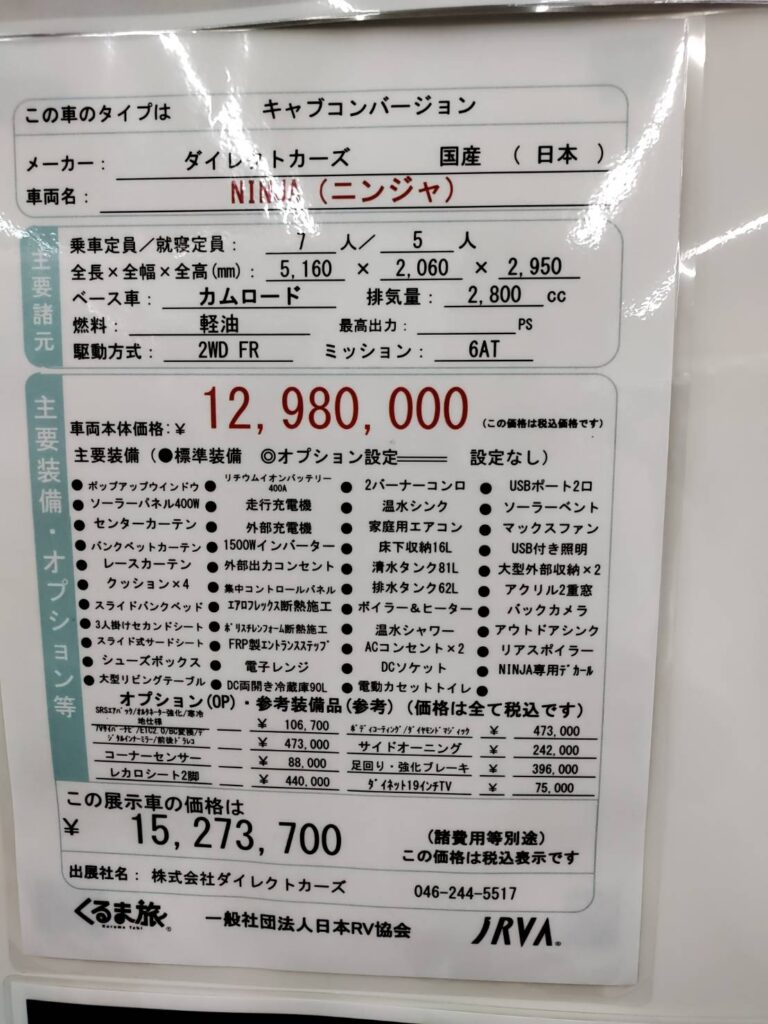 この車のタイプは キャブコンバージョン
メーカー： ダイレクトカーズ 国産 （ 日本 ）
車両名： NINJA（ニンジャ）
主要諸元
乗車定員／就寝定員： 7 人／ 5 人
全長×全幅×全高(mm)： 5,160 × 2,060 × 2,950
ベース車： カムロード 排気量： 2,800 cc
燃料： 軽油 最高出力： PS
駆動方式： 2WD FR ミッション： 6AT
主要装備・オプション等
車両本体価格：￥ 12,980,000 （この価格は税込価格です）
主要装備（●標準装備 ◎オプション設定 ━━ 設定なし）
● ポップアップウインドウ ● リチウムイオンバッテリー400A ● 2バーナーコンロ ● USBポート2口
● ソーラーパネル400W ● 走行充電機 ● 温水シンク ● ソーラーベント
● センターカーテン ● 外部充電機 ● 家庭用エアコン ● マックスファン
● バンクベットカーテン ● 1500Wインバーター ● 床下収納16L ● USB付き照明
● レースカーテン ● 外部出力コンセント ● 清水タンク81L ● 大型外部収納×2
● クッション×4 ● 集中コントロールパネル ● 排水タンク62L ● アクリル2重窓
● スライドバンクベッド ● エアロフレックス断熱施工 ● ボイラー＆ヒーター ● バックカメラ
● 3人掛けセカンドシート ● ポリスチレンフォーム断熱施工 ● 温水シャワー ● アウトドアシンク
● スライド式サードシート ● FRP製エントランスステップ ● ACコンセント×2 ● リアスポイラー
● シューズボックス ● 電子レンジ ● DCソケット ● NINJA専用デカール
● 大型リビングテーブル ● DC両開き冷蔵庫90L ● 電動カセットトイレ ●
オプション(OP)・参考装備品(参考)（価格は全て税込です）
SRSエアバック/オルタネーター強化/寒冷地仕様 ￥ 106,700 ボディコーティング/ダイヤモンドマジック ￥ 473,000
￥ 473,000 サイドオーニング ￥ 242,000
コーナーセンサー ￥ 88,000 足回り・強化ブレーキ ￥ 396,000
レカロシート2脚 ￥ 440,000 ダイネット19インチTV ￥ 75,000
この展示車の価格は
￥ 15,273,700 （諸費用等別途）
この価格は税込表示です
出展社名： 株式会社ダイレクトカーズ 046-244-5517
くるま旅 Kuruma Tabi 一般社団法人日本RV協会 JRVA